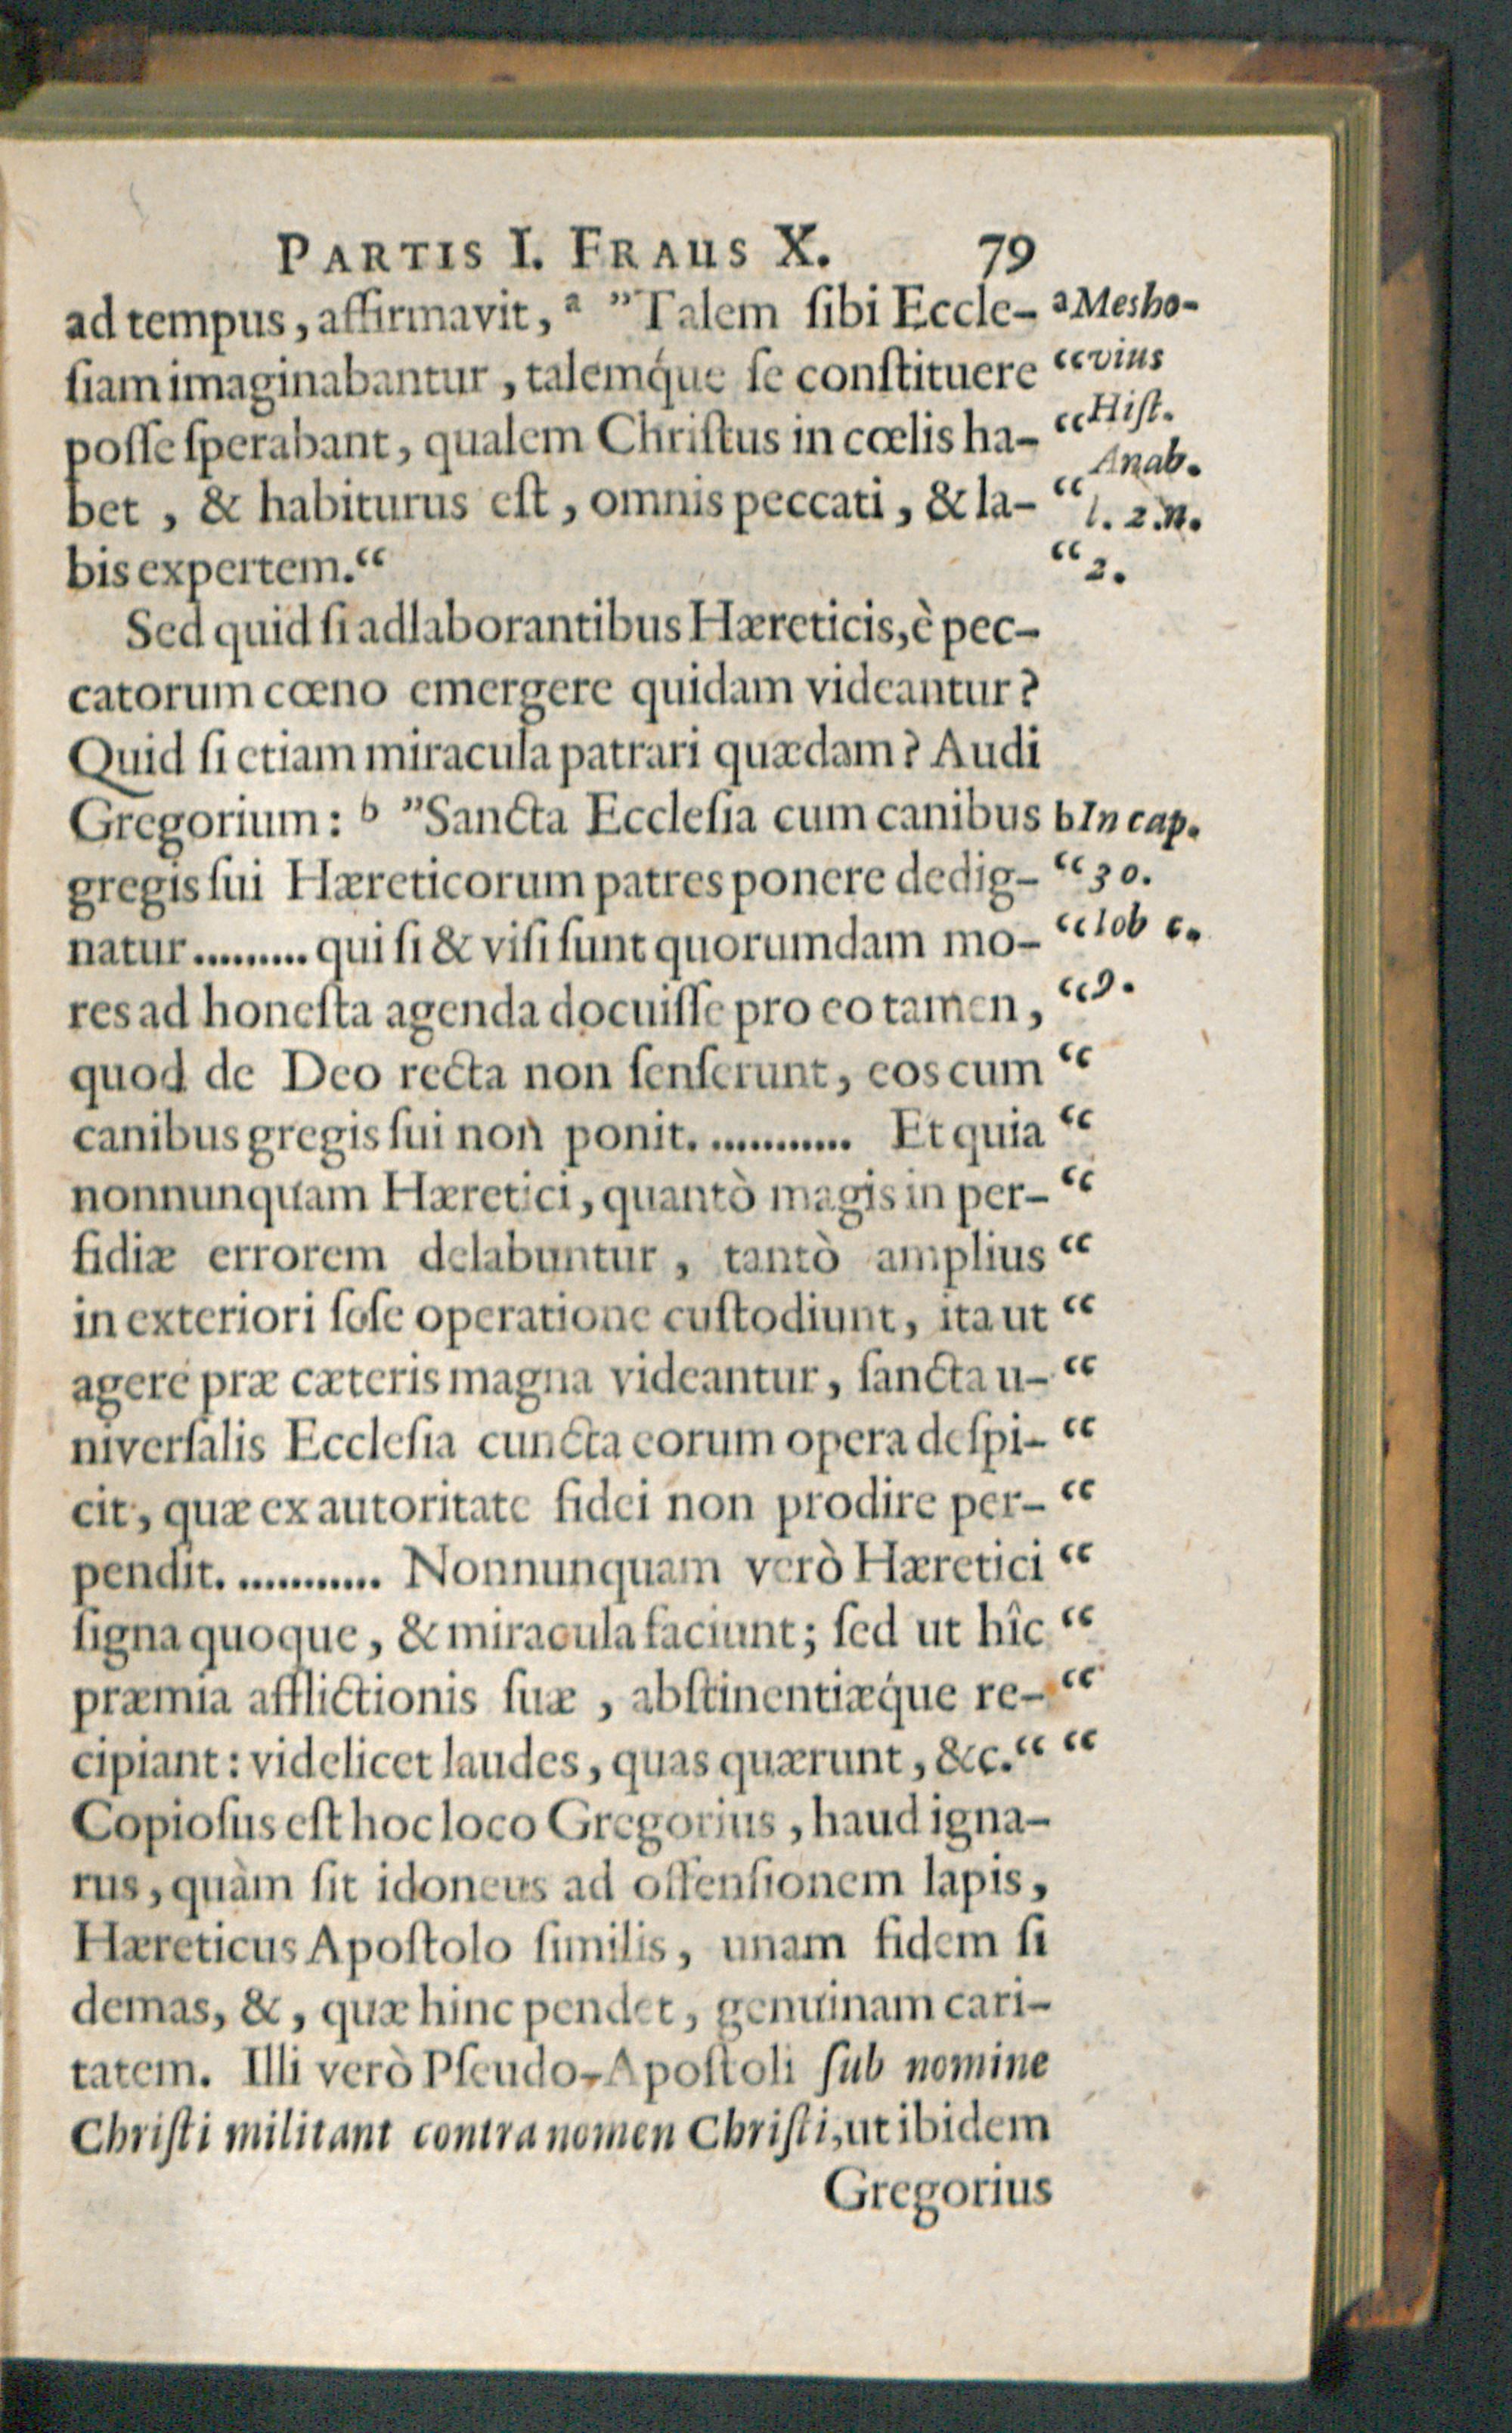 PARTIS I. FRAUS X. 79
ad tempus, affirmavit, ᵃ ”Talem ſibi Eccle- a Mesho-
ſiam imaginabantur, talemq́ue ſe conſtituere “vius
poſſe ſperabant, qualem Chriſtus in cœlis ha- “Hiſt.
Anab.
bet, & habiturus eſt, omnis peccati, & la- “l. 2. n.
bis expertem.“ “2.
Sed quid ſi adlaborantibus Hæreticis, è pec-
catorum cœno emergere quidam videantur?
Quid ſi etiam miracula patrari quædam? Audi
Gregorium: ᵇ ”Sancta Eccleſia cum canibus b In cap.
gregis ſui Hæreticorum patres ponere dedig- “30.
natur......... qui ſi & viſi ſunt quorumdam mo- “Iob c.
res ad honeſta agenda docuiſſe pro eo tamen, “9.
quod de Deo recta non ſenſerunt, eos cum “
canibus gregis ſui non ponit. ............ Et quia “
nonnunquam Hæretici, quantò magis in per- “
fidiæ errorem delabuntur, tantò amplius “
in exteriori ſeſe operatione cuſtodiunt, ita ut “
agere præ cæteris magna videantur, ſancta u- “
niverſalis Eccleſia cuncta eorum opera deſpi- “
cit, quæ ex autoritate fidei non prodire per- “
pendit. ............ Nonnunquam verò Hæretici “
ſigna quoque, & miracula faciunt; ſed ut hîc “
præmia afflictionis ſuæ, abſtinentiæq́ue re- “
cipiant: videlicet laudes, quas quærunt, &c.“ “
Copioſus eſt hoc loco Gregorius, haud igna-
rus, quàm ſit idoneus ad offenſionem lapis,
Hæreticus Apoſtolo ſimilis, unam fidem ſi
demas, &, quæ hinc pendet, genuinam cari-
tatem. Illi verò Pſeudo-Apoſtoli ſub nomine
Chriſti militant contra nomen Chriſti, ut ibidem
Gregorius